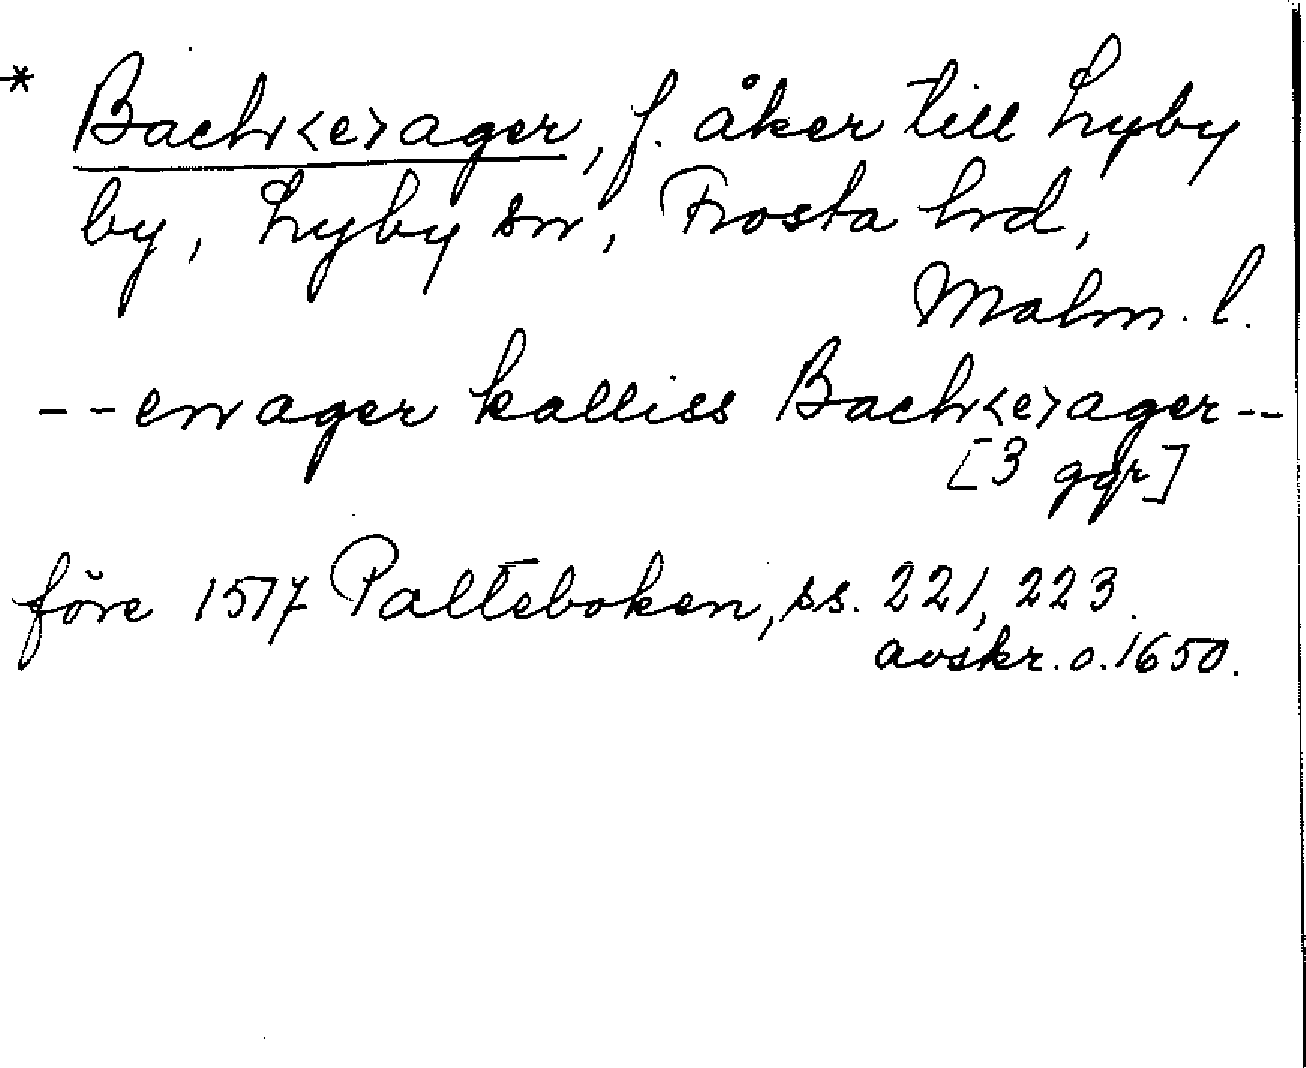 * Bach<e>ager, f. åker till Lyby
by, Lyby sn, Frosta hd,
Malm. l.
-- en ager kalliss Bach<e>ager --
[3 ggr]
före 1517 Palteboken, ss. 221, 223.
avskr. o. 1650.